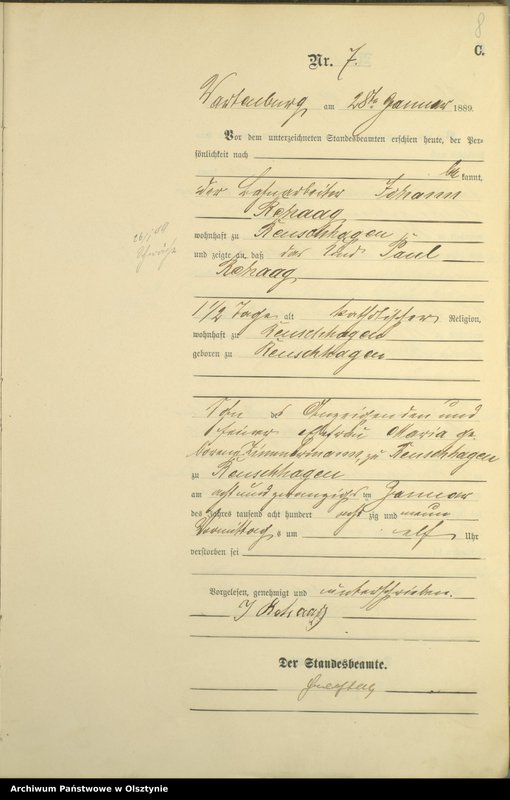 8
C.
Nr. 7.
Wartenburg am 28ten Januar 1889.
Vor dem unterzeichneten Standesbeamten erschien heute, der Per-
sönlichkeit nach
be kannt,
der Bahnarbeiter Johann
Rehaag
wohnhaft zu Reuschhagen
und zeigte an, daß das Kind Paul
Rehaag
1 1/2 Tage alt katholischer Religion,
wohnhaft zu Reuschhagen
geboren zu Reuschhagen
Sohn des Anzeigenden und
seiner Ehefrau Maria ge
borene Zimmermann, zu Reuschhagen
zu Reuschhagen
am acht und zwanzigs ten Januar
des Jahres tausend acht hundert acht zig und neun
Vormittag s um elf Uhr
verstorben sei
Vorgelesen, genehmigt und unterschrieben.
J Rehaag
Der Standesbeamte.
Archiwum Państwowe w Olsztynie